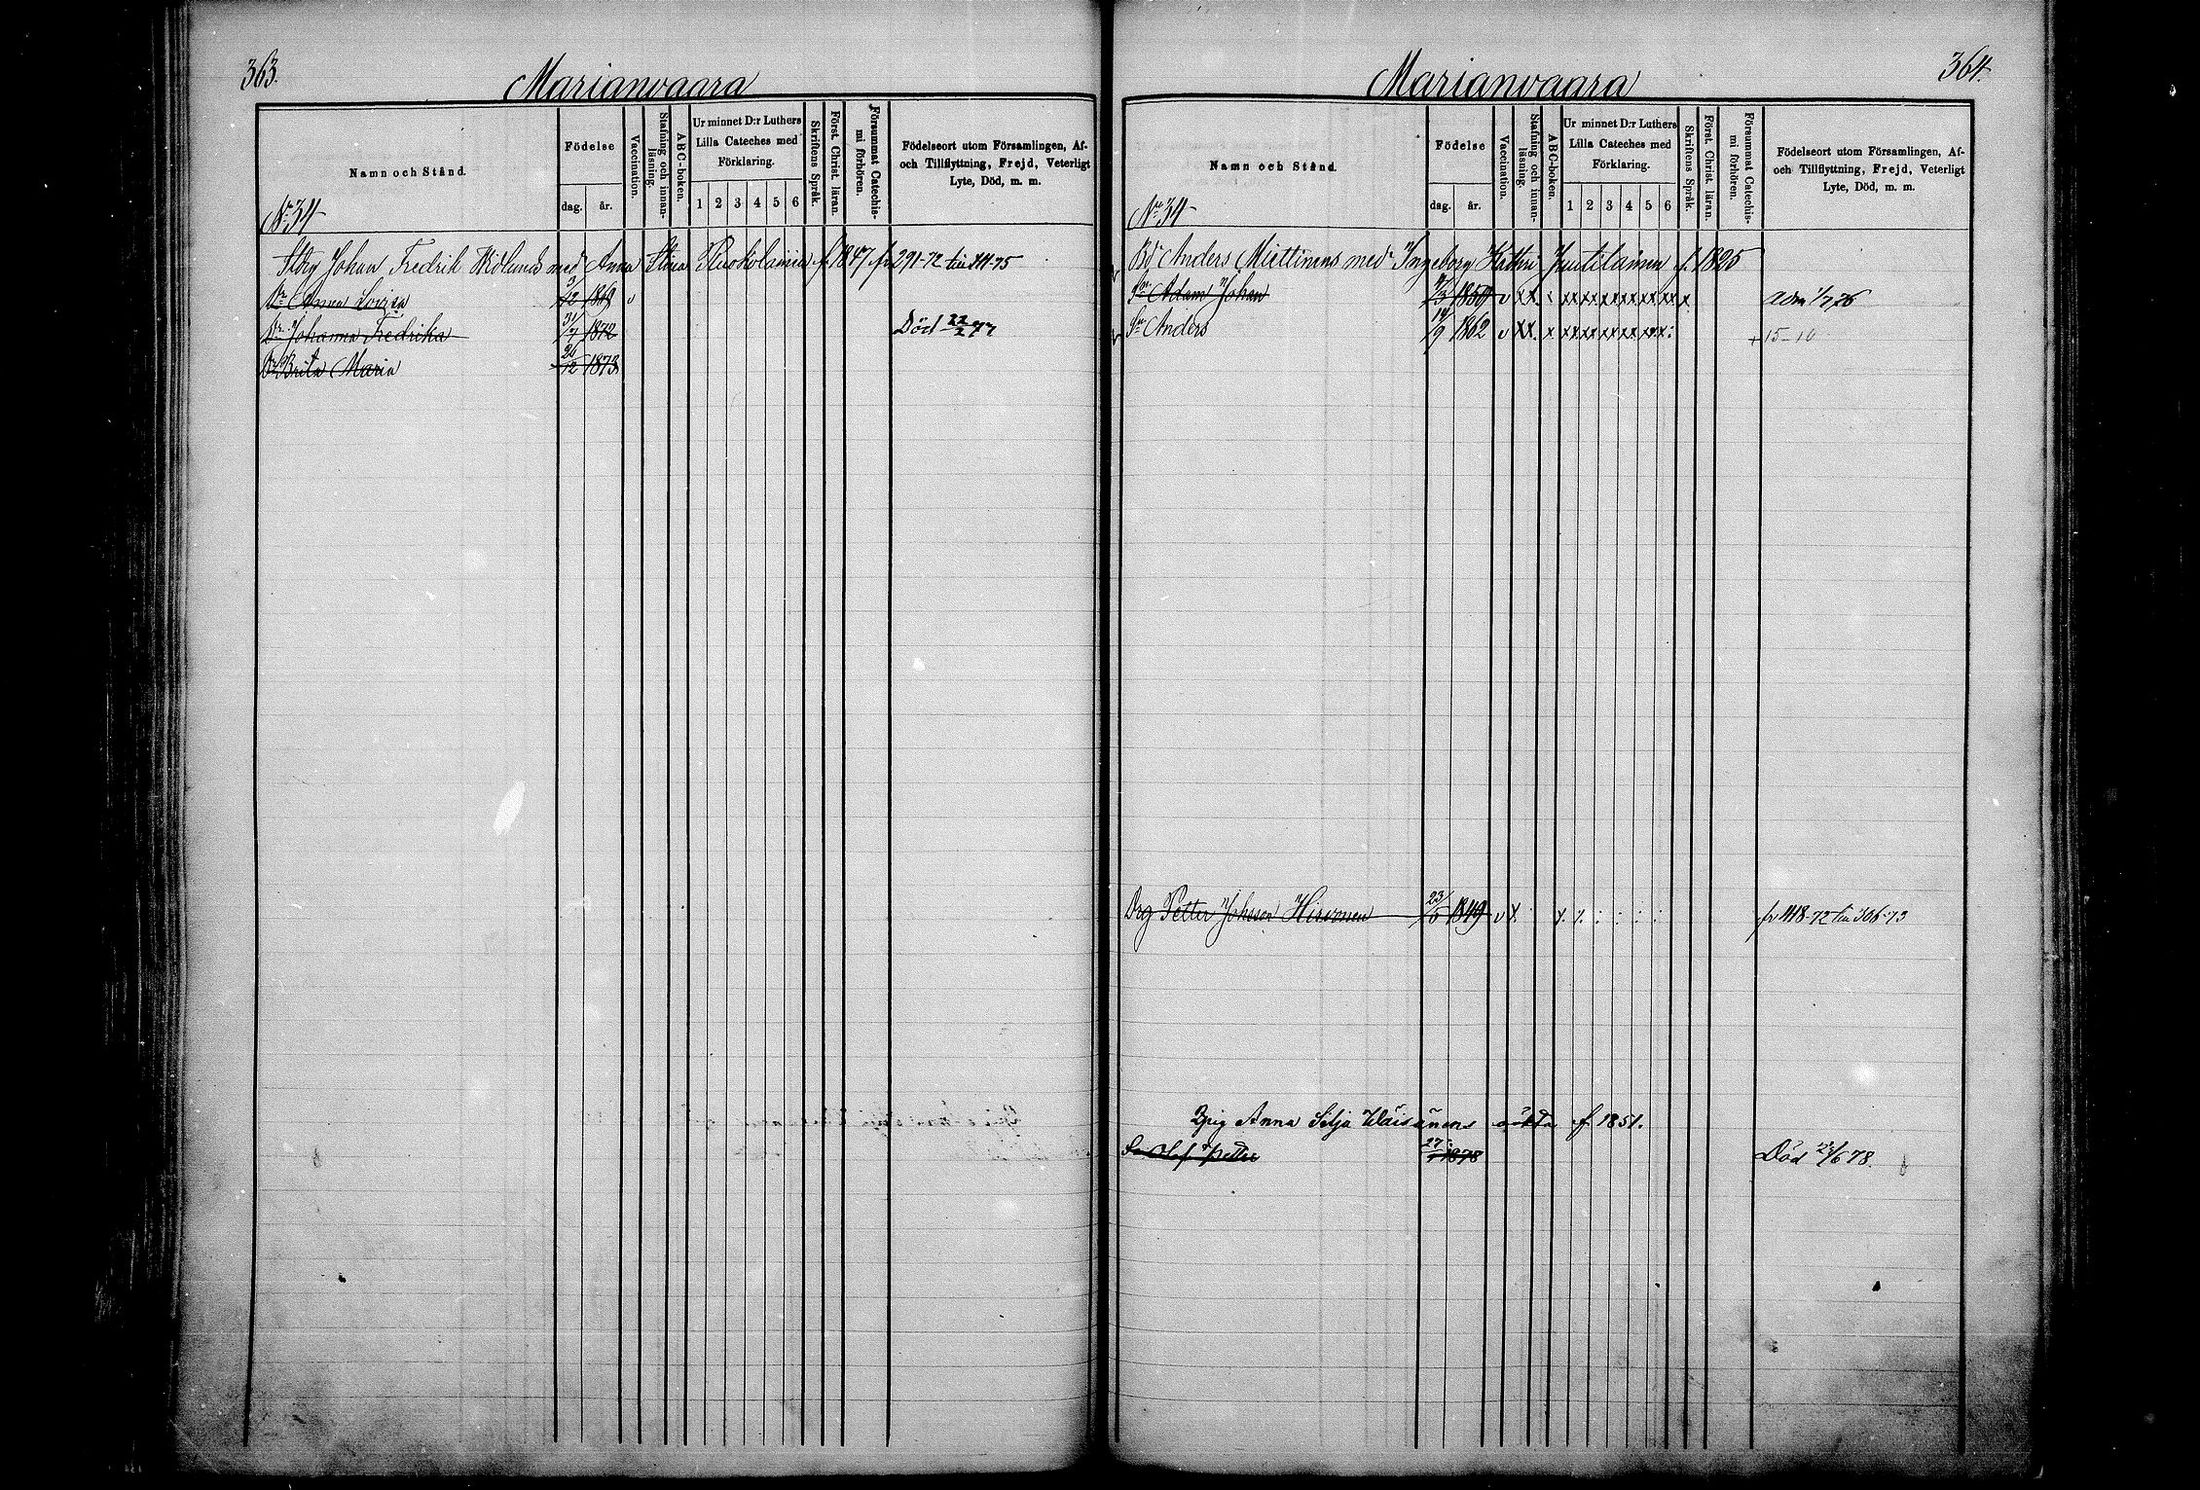 363.
Marianvaara
Namn och Stånd.
Födelse
dag.
år.
Vaccination.
Stafning och innanläsning.
ABC-boken.
Ur minnet D:r Luthers
Lilla Cateches med
Förklaring.
1 2 3 4 5 6
Skriftens Språk.
Först. Christ. läran.
Försummat Catechismi förhören.
Födelseort utom Församlingen, Af-
och Tillflyttning, Frejd, Veterligt
Lyte, Död, m. m.
No 34
Johan Fredrik med Anna Stina f. 1847 fr 291-72 till
Dr Anna Lovisa 3/12 1869 v
Dr Johanna Fredrika 31/7 1872 Död 22/2 77
Dr Brita Maria 26/12 1873
364.
Marianvaara
Namn och Stånd.
Födelse
dag.
år.
Vaccination.
Stafning och innanläsning.
ABC-boken.
Ur minnet D:r Luthers
Lilla Cateches med
Förklaring.
1 2 3 4 5 6
Skriftens Språk.
Först. Christ. läran.
Försummat Catechismi förhören.
Födelseort utom Församlingen, Af-
och Tillflyttning, Frejd, Veterligt
Lyte, Död, m. m.
No 34
Anders Miettinens med Ingeborg Kathri Juutilainen f. 1825
Sn Adam Johan 1850 v xx
Sn Anders /9 1862 v xx. x + 15-10
Drg Petter Johsson Hirvonen 23/6 1849 v x fr 418-72 till 306-73
Anna Silja Wäisänens oäkta f 1851.
Sn Olof Petter 27/1 1878 Död /6 78.